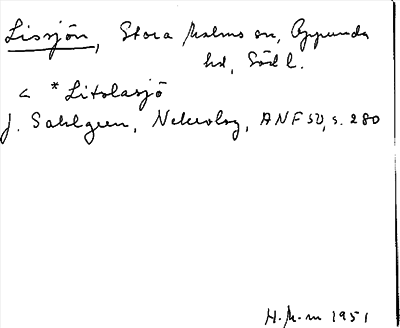 Lissjön, Stora Malms sn, Oppunda
hd, Södl.
< *Litslasjö
J. Sahlgren, Nekrolog, ANF 50, s. 280
H.M-m 1951